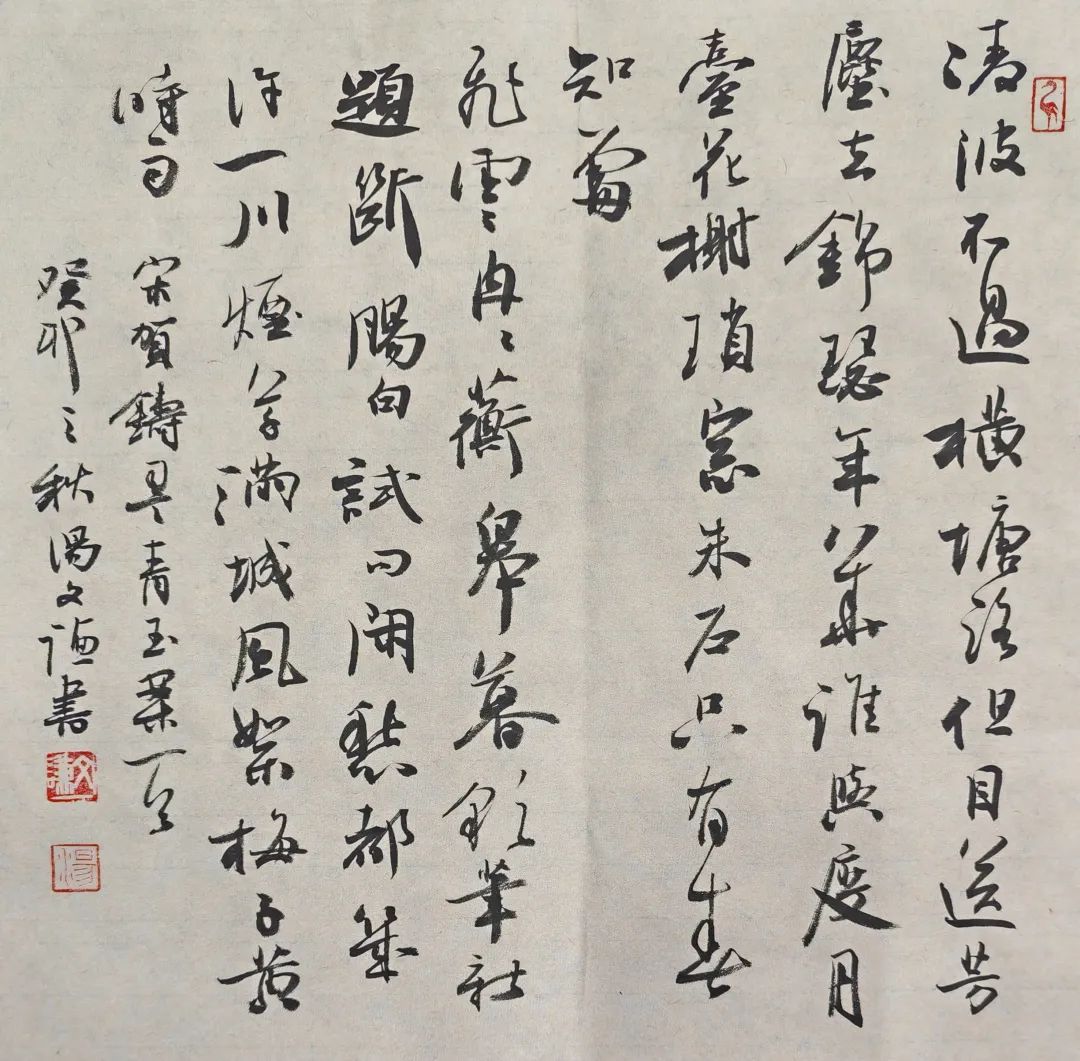 淩波不過橫塘路但目送芳
塵去錦瑟年華誰與度月
臺花榭瑣窻朱户只有春
知處
飛雲冉々蘅皋暮彩筆新
題斷腸句試問閑愁都幾
許一川煙草滿城風絮梅子黃
時雨 宋賀鑄青玉案一首
癸卯之秋湯文謙書
文謙
湯